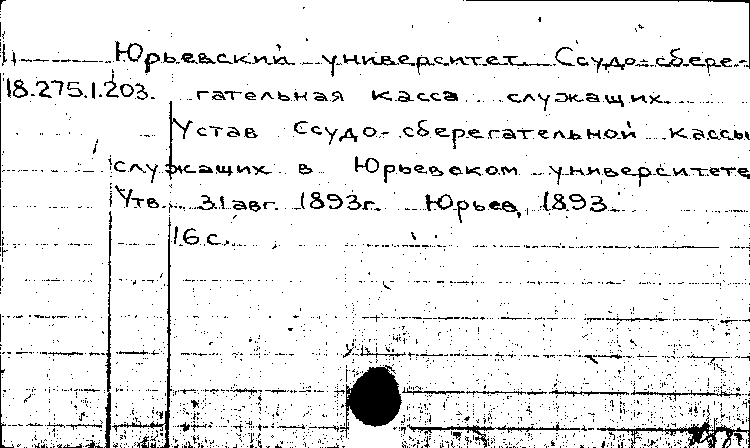 Юрьевский университет. Ссудо-сбере-
18.275.1.203. гательная касса служащих.
Устав Ссудо-сберегательной кассы
служащих в Юрьевском университете
Утв. 31 авг. 1893г. Юрьев, 1893.
16 с.